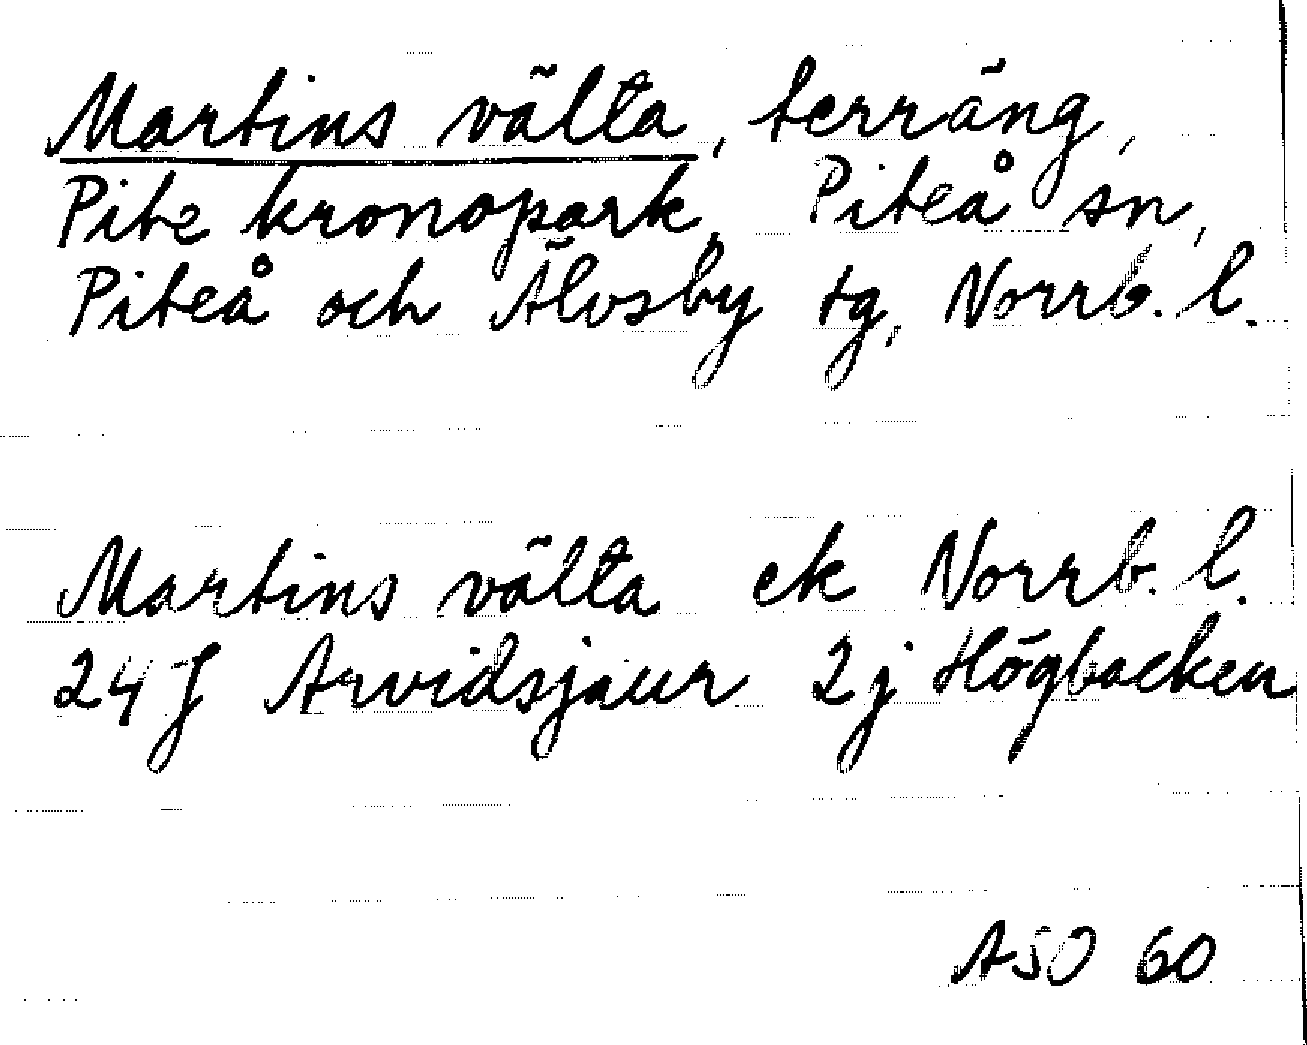 Martins välta, terräng,
Pite kronopark, Piteå sn,
Piteå och Älvsby tg, Norrb. l.
Martins välta ek Norrb. l.
24 J Arvidsjaur 2j Högbacken
ASO 60